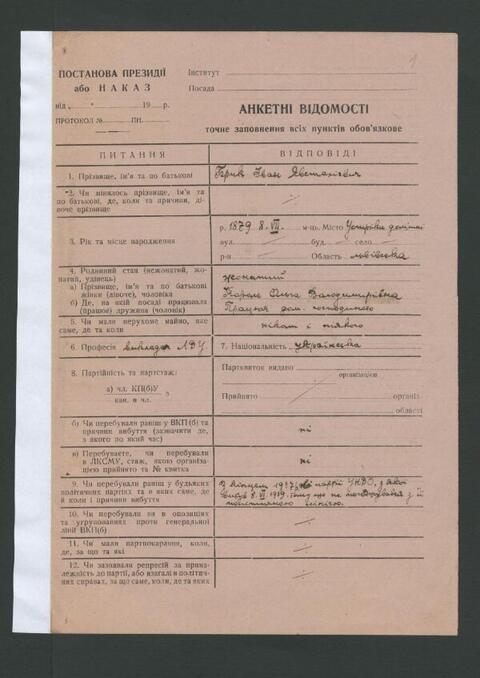 1
ПОСТАНОВА ПРЕЗИДІЇ
або НАКАЗ
від „ “ 19 р.
ПРОТОКОЛ № ПН.
Інститут
Посада
АНКЕТНІ ВІДОМОСТІ
точне заповнення всіх пунктів обов'язкове
ПИТАННЯ
ВІДПОВІДІ
1. Прізвище, ім'я та по батькові
Брик Іван Євстахієвич
2. Чи мінялось прізвище, ім'я та
по батькові, де, коли та причини, ді-
воче прізвище
3. Рік та місце народження
р. 1879 8. VII. м-ць. Місто Устрики долішні
вул. буд. село
р-н Область львівська
4. Родинний стан (нежонатий, жо-
натий, удівець)
жонатий
а) Прізвище, ім'я та по батькові
жінки (дівоче), чоловіка
Ольга Володимирівна
б) Де, на якій посаді працювала
(працює) дружина (чоловік)
Працює дом.
5. Чи мали нерухоме майно, яке
саме, де та коли
ніякого
6. Професія викладач ЛДУ
7. Національність українська
8. Партійність та партстаж:
а) чл. КП(б)У
кан. в чл.
Партквиток видано
організацією
Прийнято
організ.
області
б) Чи перебували раніш у ВКП(б) та
причини вибуття (зазначити де,
з якого по який час)
ні
в) Перебуваєте, чи перебували
в ЛКСМУ, стаж, якою організа-
цією прийнято та № квитка
ні
9. Чи перебували раніш у будьяких
політичних партіях та в яких саме, де
й коли і причини вибуття
партії УНДО, з якої
що не погоджувався з її
політичною лінією.
10. Чи перебували ви в опозиціях
та угрупованнях проти генеральної
лінії ВКП(б)
11. Чи мали партпокарання, коли,
де, за що та які
12. Чи зазнавали репресій за прина-
лежність до партії, або взагалі в політич-
них справах, за що саме, коли, де та яких